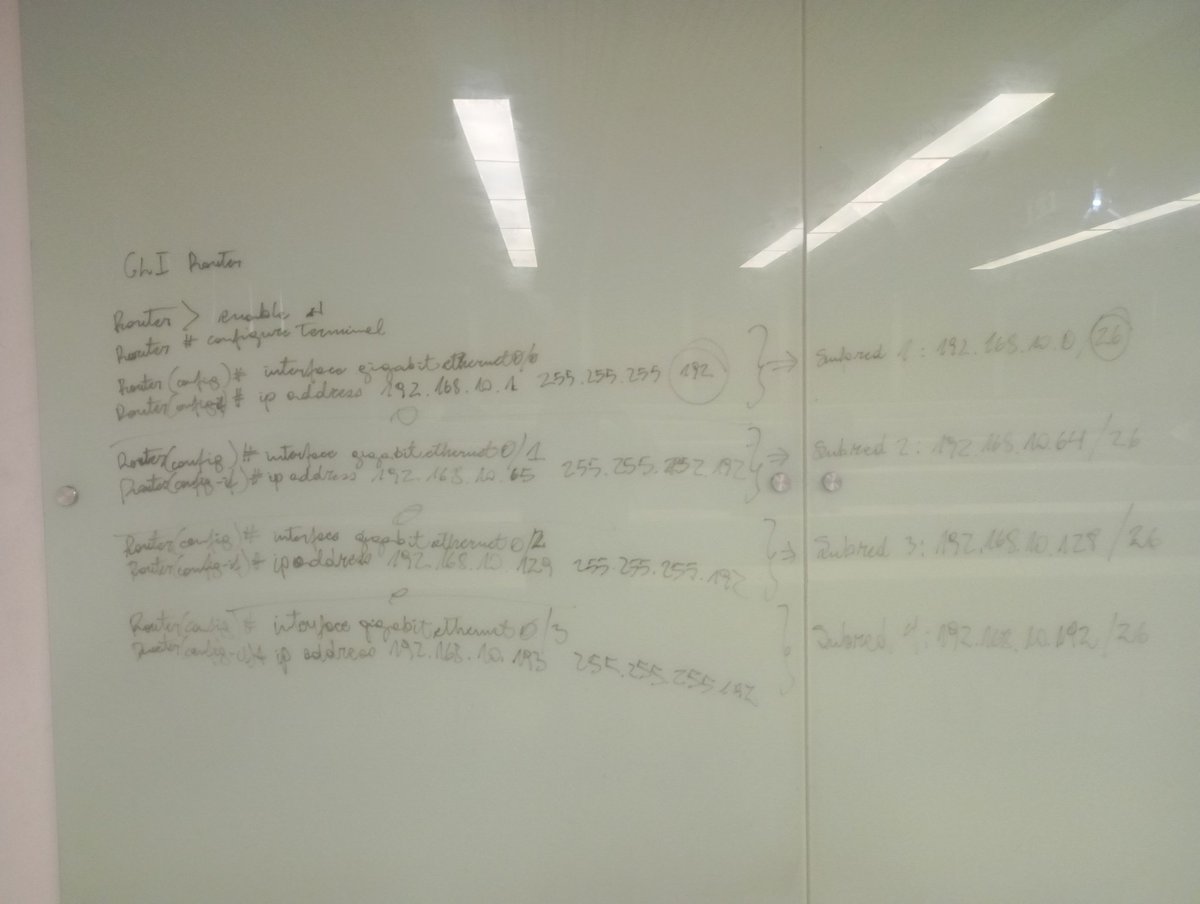 CLI Router
Router > enable
Router # configure terminal
Router(config)# interface gigabitethernet 0/0
Router(config-if)# ip address 192.168.10.1 255.255.255 192
Subred 1: 192.168.10.0/26
Router(config)# interface gigabitethernet 0/1
Router(config-if)# ip address 192.168.10.65 255.255.252.192
Subred 2: 192.168.10.64/26
Router(config)# interface gigabitethernet 0/2
Router(config-if)# ip address 192.168.10.129 255.255.255.192
Subred 3: 192.168.10.128/26
Router(config)# interface gigabitethernet 0/3
Router(config-if)# ip address 192.168.10.193 255.255.255.192
Subred 4: 192.168.10.192/26